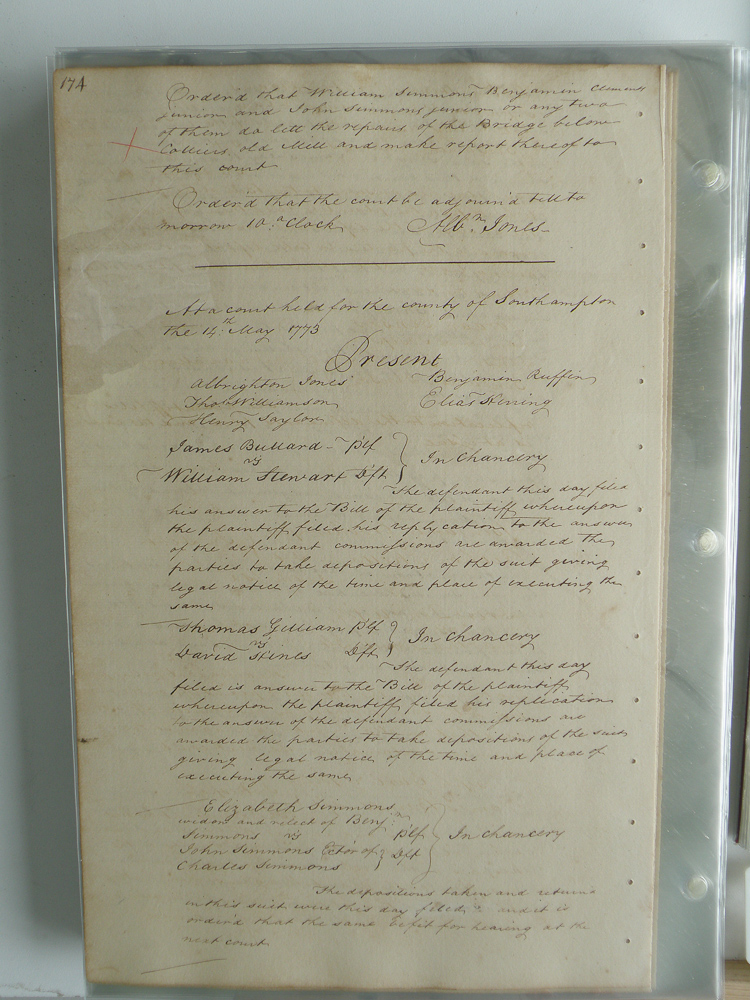 174
Order'd that William Simmons Benjamin Clements
junior and John Simmons junior or any two
of them do lett the repairs of the Bridge below
Colliers old Mill and make report thereof to
this court
Order'd that the court be adjourn'd till to
morrow 10 a Clock Alb.n Jones
At a court held for the county of Southampton
the 14th May 1773
Present
Albrighton Jones Benjamin Ruffin
Tho.s Williamson Elias Herring
Henry Taylor
James Bullard Plf
vs In Chancery
William Stewart Dft
The defendant this day filed
his answer to the Bill of the plaintiff whereupon
the plaintiff filed his replycation to the answer
of the defendant commissions are awarded the
parties to take depositions of the suit giving
legal notice of the time and place of executing the
same
Thomas Gilliam Plf
vs In Chancery
David Hines Dft
The defendant this day
filed is answer to the Bill of the plaintiff
whereupon the plaintiff filed his replication
to the answer of the defendant commissions are
awarded the parties to take depositions of the suit
giving legal notice of the time and place of
executing the same
Elizabeth Simmons
widow and relect of Benj.n
Simmons vs Plf In Chancery
John Simmons Ector of Dft
Charles Simmons
The depositions taken and return'd
in this suit were this day filed and it is
order'd that the same for hearing at the
next court